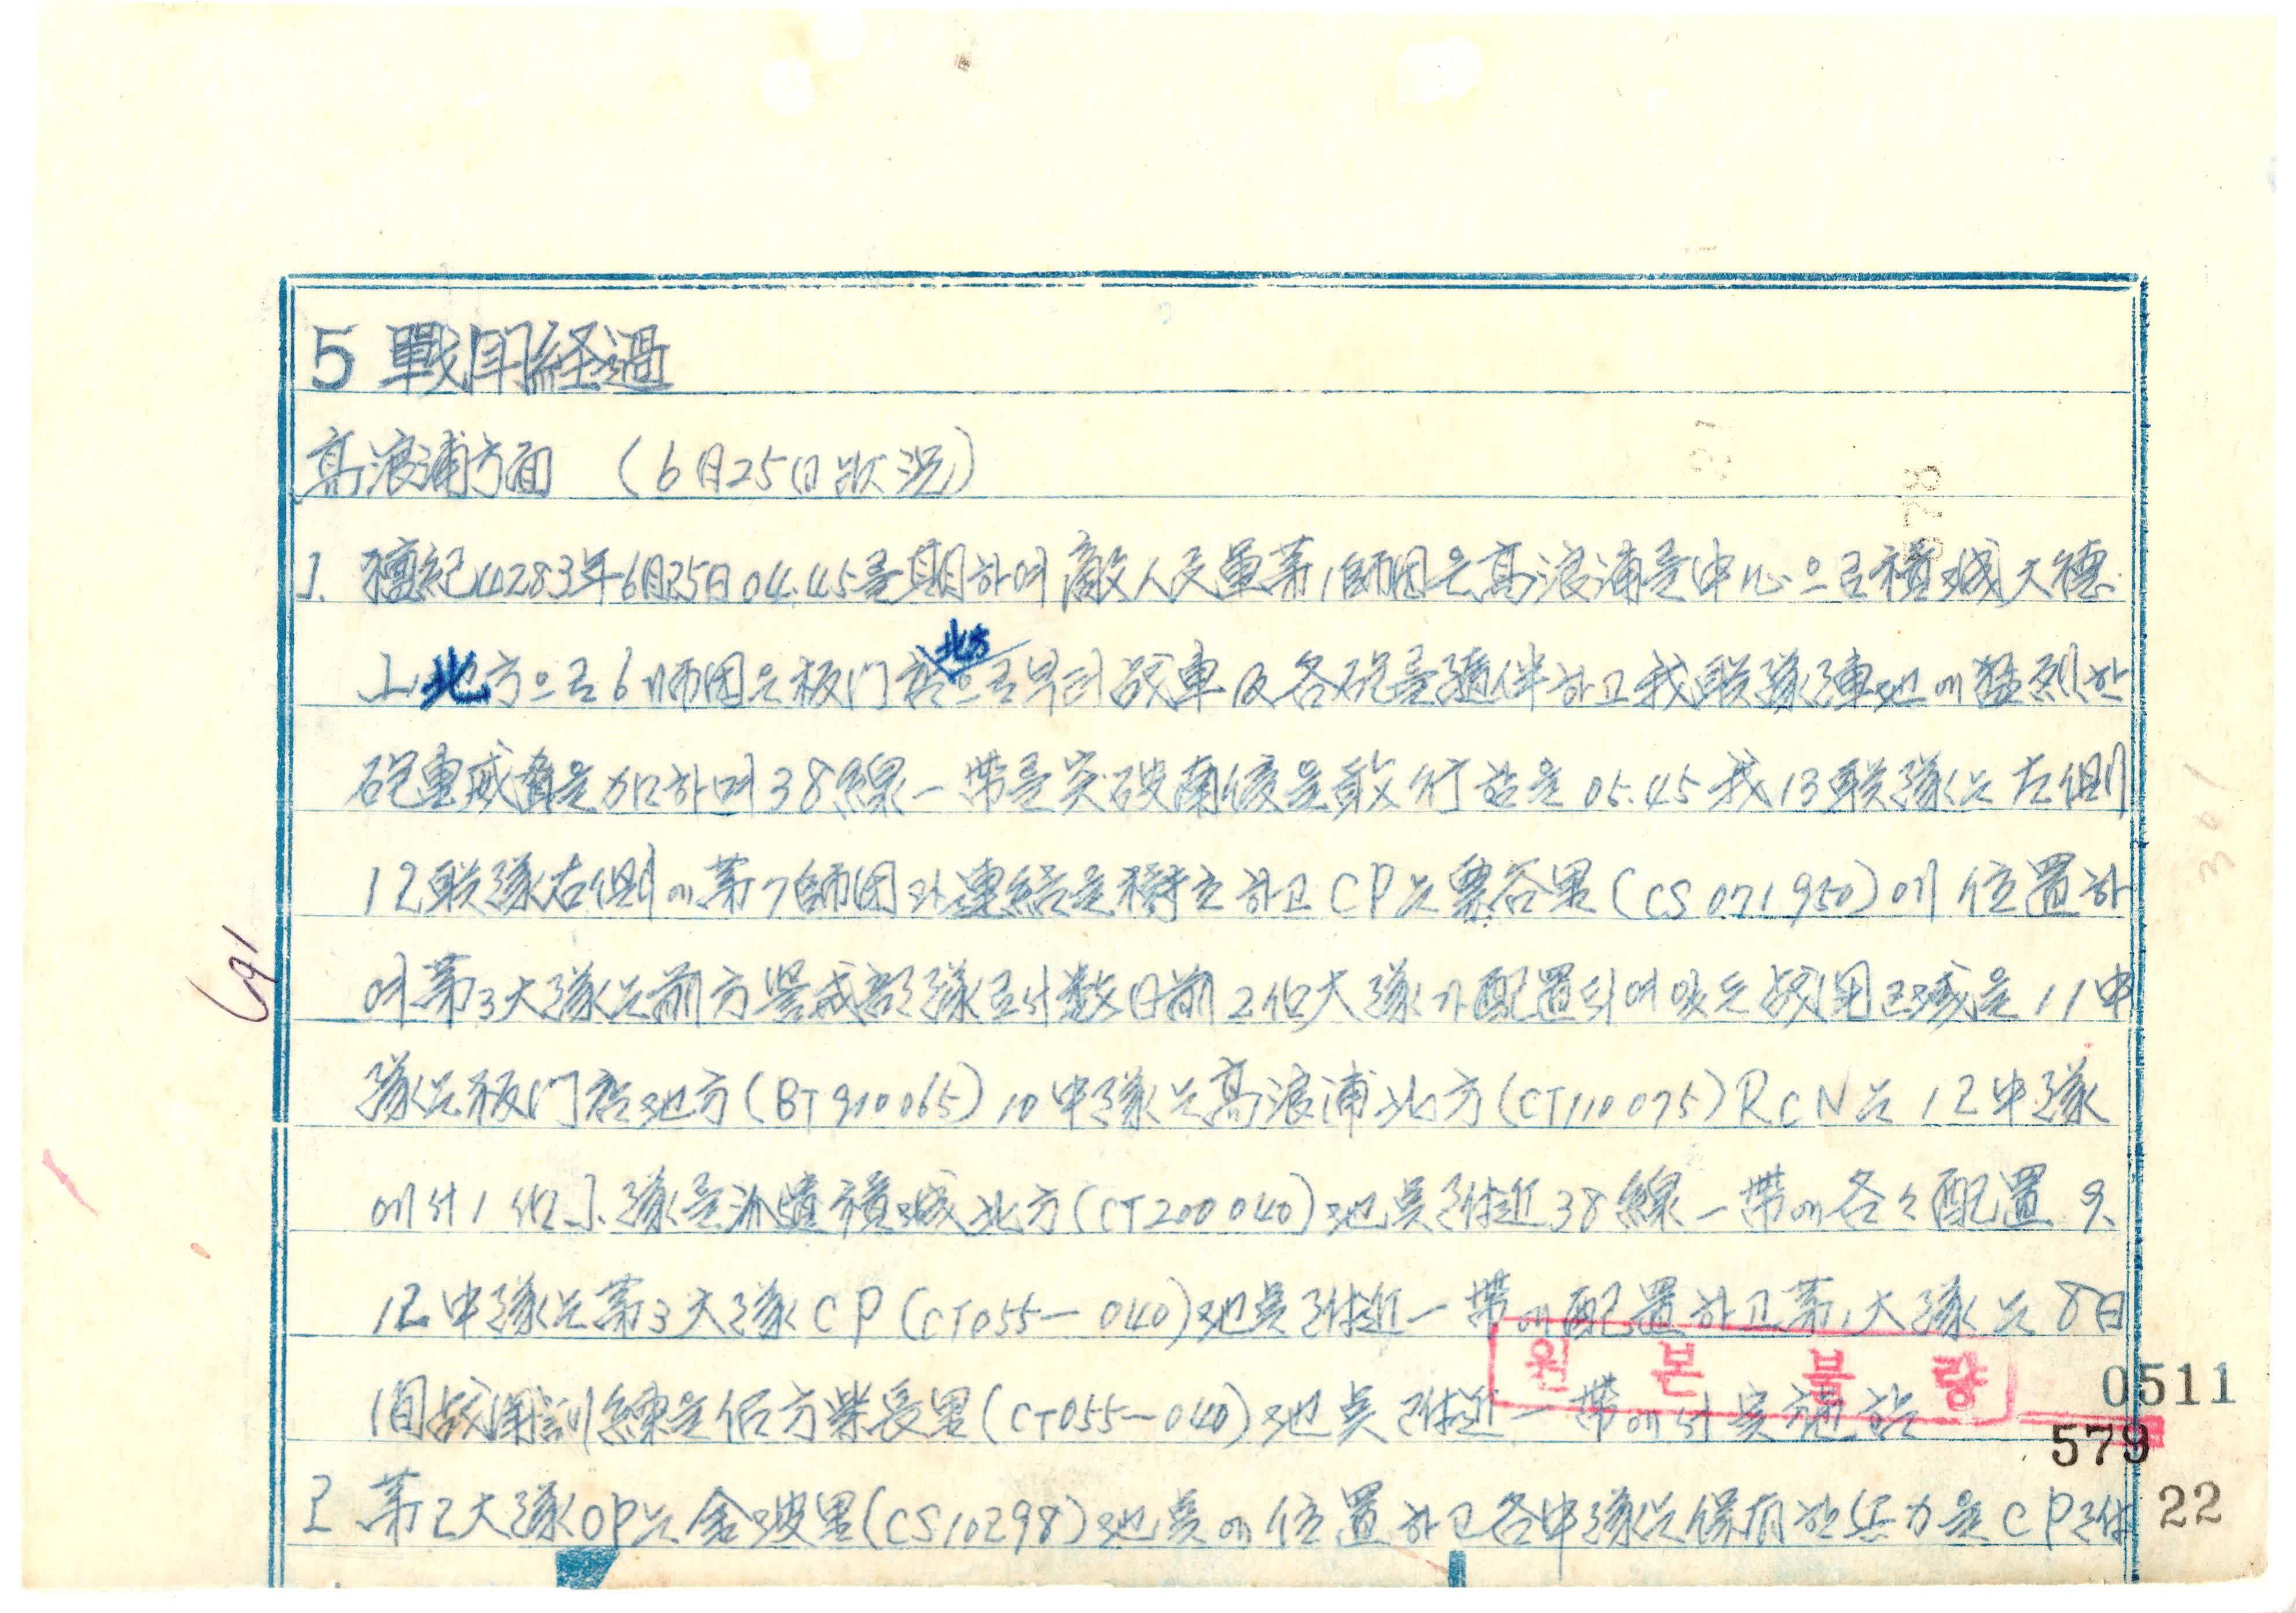 5 戰鬪経過
高浪浦方面 (6月25日狀況)
1. 檀紀4283年6月25日04.45를 期하여 敵人民軍第1師団은 高浪浦를 中心으로 積城大德
山北方으로 6師団은 板門店北方으로부터 战車 及 各砲를 随伴하고 我联隊陳地에 猛烈한
砲車威 을 加하며 38線一帶를 突破南侵을 敢行했을 05.45 我13联隊는 左側
12联隊右側에 第7師団과 連結을 樹立하고 CP는 栗谷里(CS071950)에 位置하
여 第3大隊는 前方警戒部隊로서 数日前 2個大隊가 配置되여있는 战鬪区域을 11中
隊는 板門店地方(BT910065) 10中隊는 高浪浦北方(CT110075) RCN는 12中隊
에서 1個小隊를 派遣 積城北方(CT200040)地点附近 38線一帶에 各々配置 9.
12中隊는 第3大隊CP(CT055-040)地点附近一帶에 配置하고 第1大隊는 8日
間战鬪訓練을 后方 長里(CT055-040)地点附近一帶에서 実施했
2 第2大隊OP는 金坡里(CS10298)地点에 位置하고 各中隊는 保有한 兵力을 CP附
원본불량
0511
579
22
578
691
301